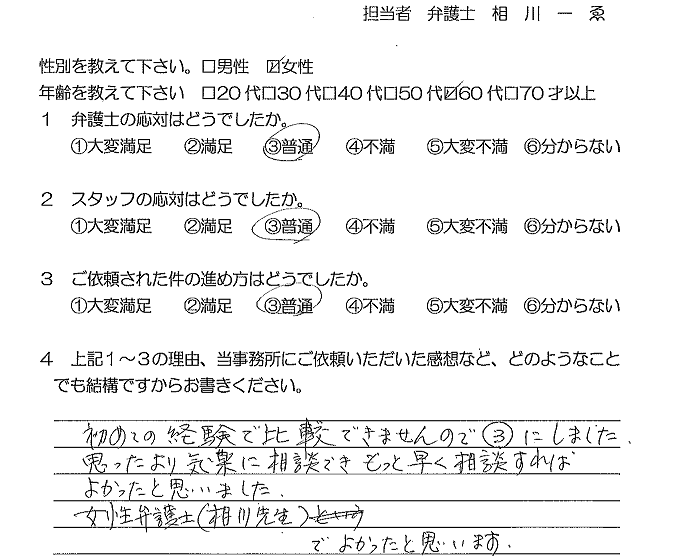 担当者 弁護士 相 川 一 ゑ
性別を教えて下さい。□男性 ☑女性
年齢を教えて下さい □20代□30代□40代□50代☑60代□70才以上
1 弁護士の応対はどうでしたか。
①大変満足 ②満足 ③普通 ④不満 ⑤大変不満 ⑥分からない
2 スタッフの応対はどうでしたか。
①大変満足 ②満足 ③普通 ④不満 ⑤大変不満 ⑥分からない
3 ご依頼された件の進め方はどうでしたか。
①大変満足 ②満足 ③普通 ④不満 ⑤大変不満 ⑥分からない
4 上記1～3の理由、当事務所にご依頼いただいた感想など、どのようなこと
でも結構ですからお書きください。
初めての経験で比較できませんので③にしました.
思ったより気楽に相談でき もっと早く相談すれば
よかったと思いました.
女性弁護士(相川先生)
でよかったと思います.